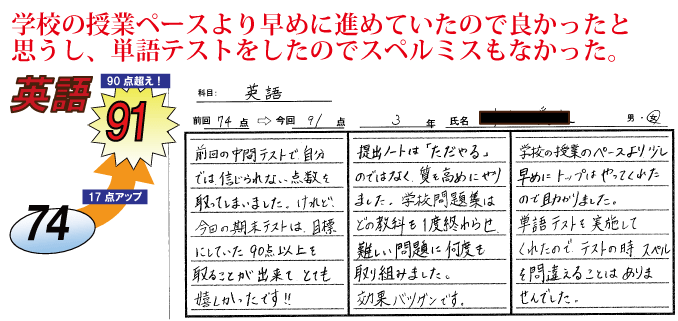 学校の授業ペースより早めに進めていたので良かったと
思うし、単語テストをしたのでスペルミスもなかった。
英語
90点超え!
91
17点アップ
74
科目: 英語
前回 74 点 ⇨ 今回 91 点 3 年 氏名 男・女
前回の中間テストで自分
では信じられない点数を
取ってしまいました。けれど、
今回の期末テストは、目標
にしていた90点以上を
取ることが出来て とても
嬉しかったです!!
提出ノートは「ただやる」
のではなく、質を高めにやり
ました。学校問題集は
どの教科も1度終わらせ、
難しい問題に何度も
取り組みました。
効果バツグンです。
学校の授業のペースより少し
早めに トップはやってくれた
ので助かりました。
単語テストを実施して
くれたので、テストの時 スペル
を間違えることはありま
せんでした。